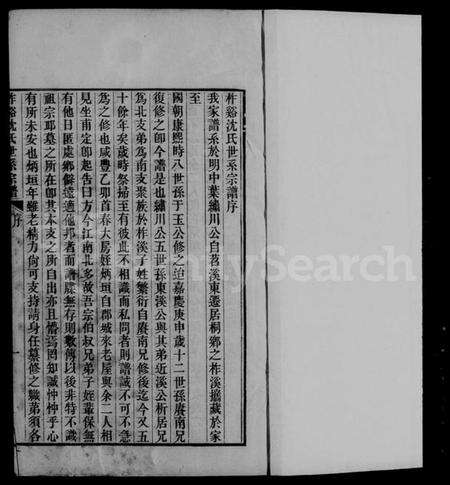 柞谿沈氏世系宗譜序
我家譜系於明中葉繡川公自苕溪東遷居桐鄉之柞溪攟藏於家
至
國朝康熙時八世孫于玉公修之迨嘉慶庚申歲十二世孫賡南兄
復修之卽今譜是也繡川公五世孫東溪公與其弟近溪公析居兄
為北支弟為南支聚族於柞溪子姓繁衍自賡南兄修後迄今又五
十餘年矣歲時祭掃至有彼此不相識而私問者則譜誠不可不急
為之修也咸豐乙卯首春大房姪炳垣自郡城來老屋與余二人相
見坐甫定卽起告曰方今江南北多故吾宗伯叔兄弟子姪輩保無
有他日匿處鄉僻遠適他邦者而譜牒無存則數傳以後非特不識
祖宗耶墓之所在卽其本支之所自出亦且懵焉罔知誠忡忡乎心
有所未安也炳垣年雖老精力尙可支持請身任纂修之職弟須各
柞谿沈氏世系宗譜 序 一
MySearch